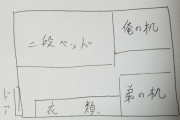 二段ベッド
俺の机
弟の机
ドア
衣類